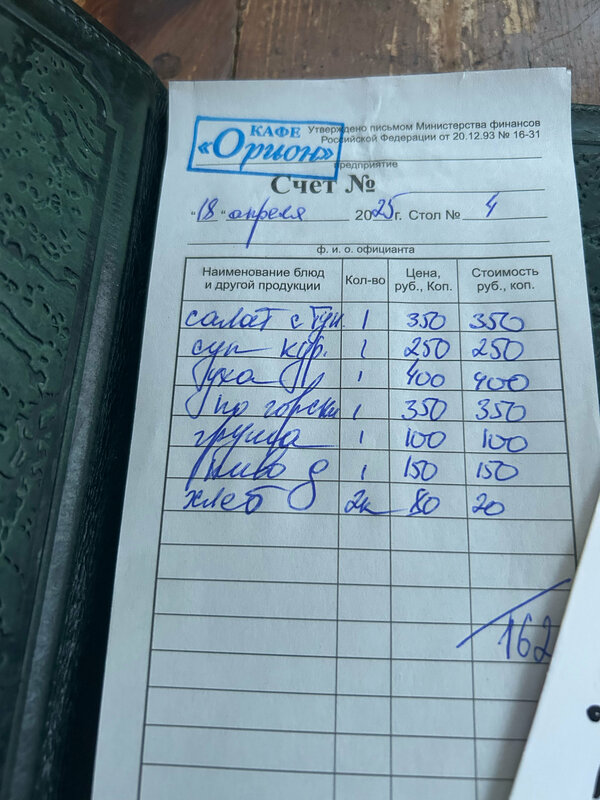 КАФЕ
«Орион»
Утверждено письмом Министерства финансов
Российской Федерации от 20.12.93 № 16-31
предприятие
Счет №
"18" апреля 2025г. Стол № 4
ф. и. о. официанта
Наименование блюд и другой продукции Кол-во Цена, руб., Коп. Стоимость руб., коп.
салат с тун. 1 350 350
суп кур. 1 250 250
уха 1 400 400
по горски 1 350 350
груша 1 100 100
пиво 1 150 150
хлеб 2к 80 20
162